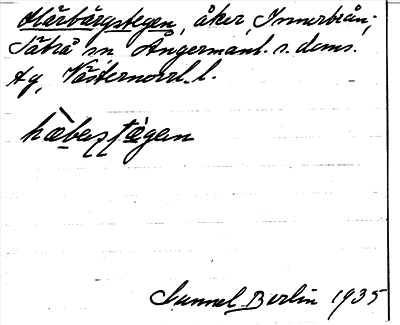 Härbärgstegen, åker, Innerbrån,
Säbrå sn Ångermanl. s. doms.
tg, Västernorrl. l.
hæ̀bas̩t̩ǽgan
Gunnel Berlin 1935